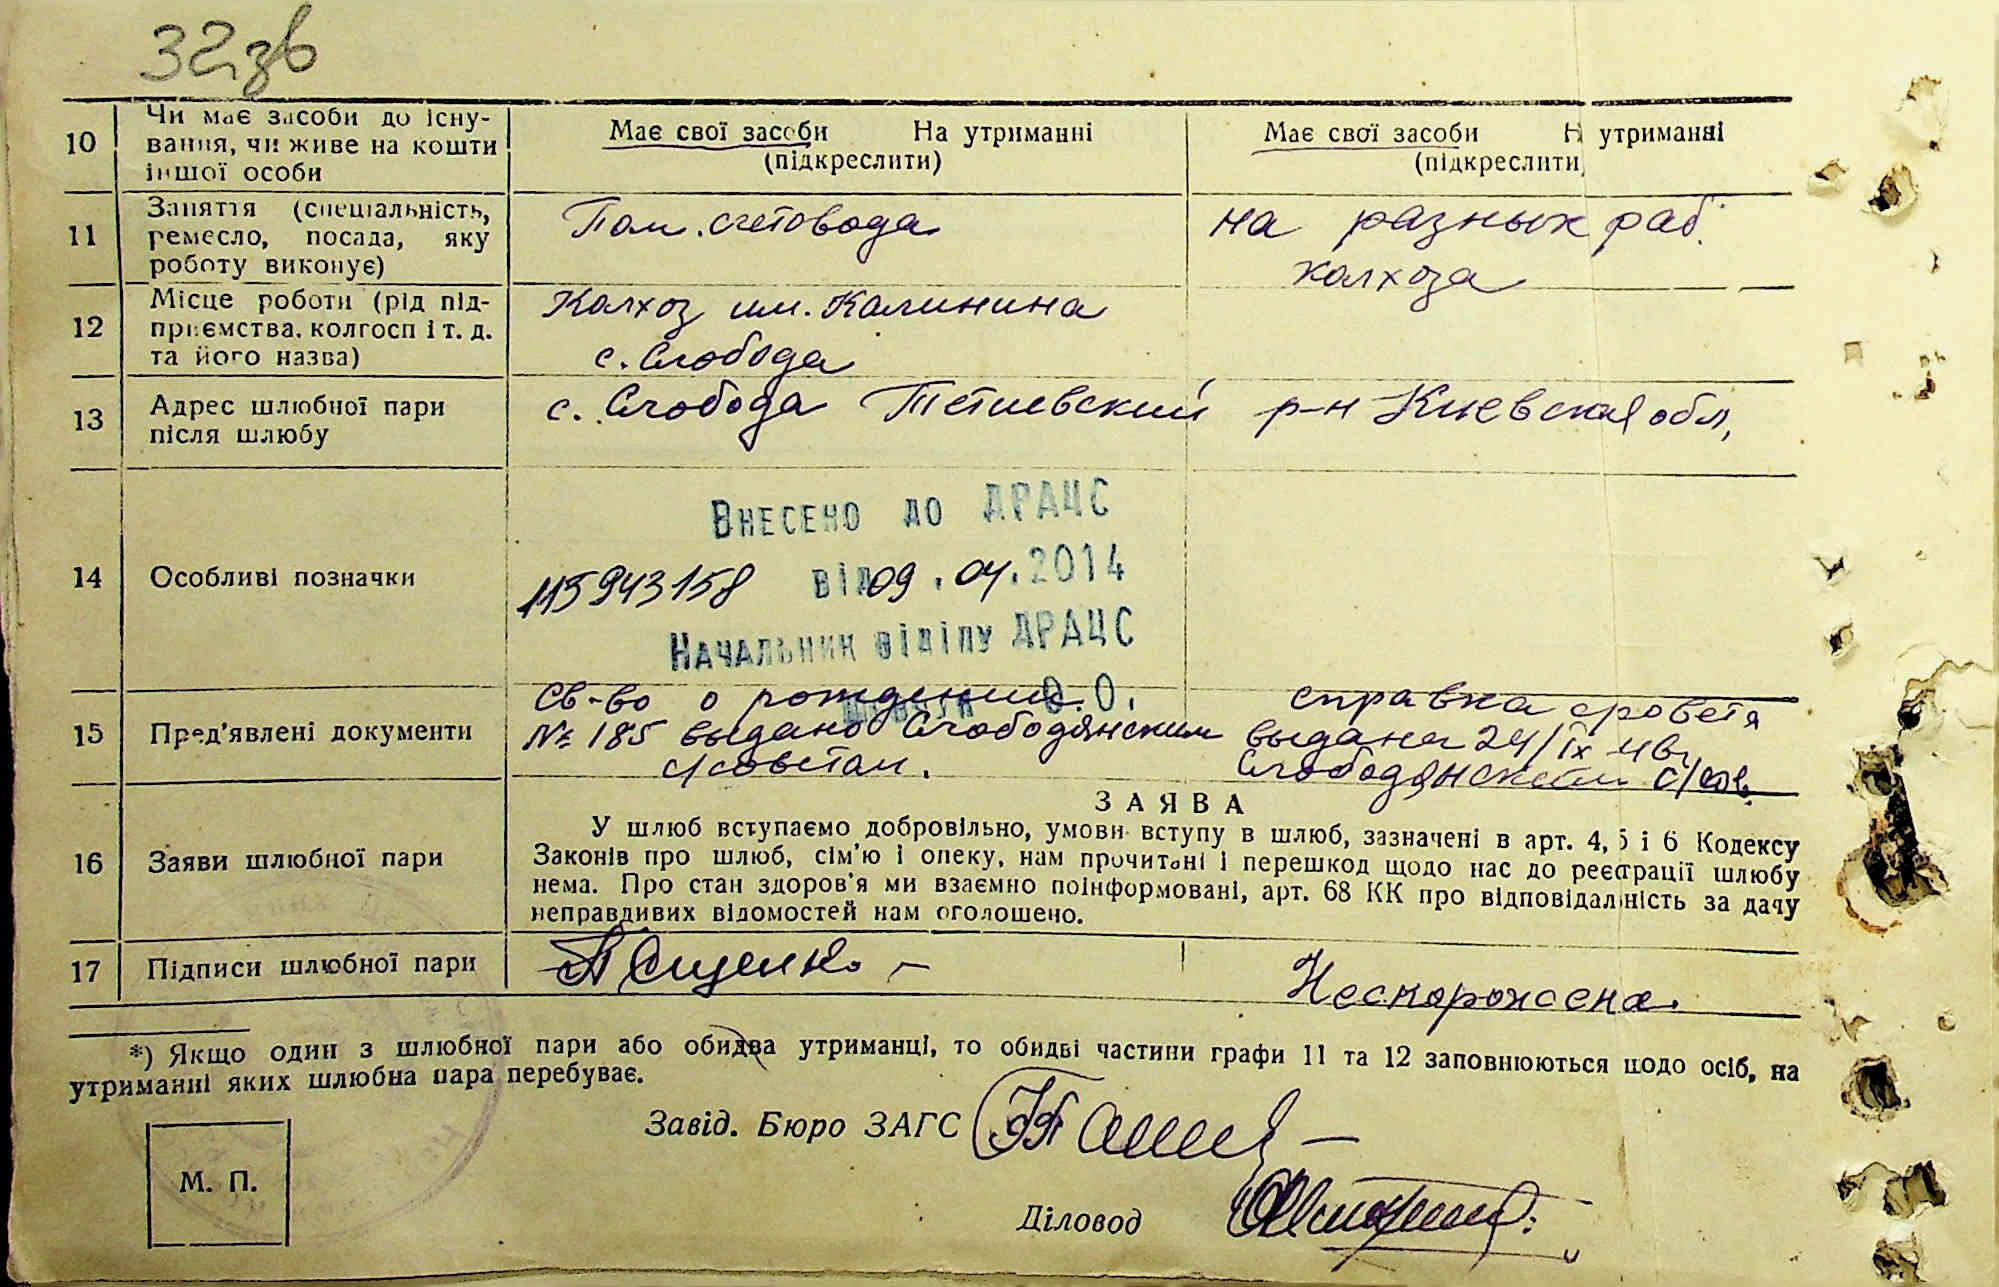 32зв
10 Чи має засоби до існу-
вання, чи живе на кошти
іншої особи
Має свої засоби На утриманні
(підкреслити)
Має свої засоби Н утриманні
(підкреслити
11 Заняття (спеціальність,
ремесло, посада, яку
роботу виконує)
Пом. счетовода
на разных раб.
колхоза
12 Місце роботи (рід під-
приємства, колгосп і т. д.
та його назва)
Колхоз им. Калинина
с. Слобода
13 Адрес шлюбної пари
після шлюбу
с. Слобода Тетиевский р-н Киевская обл,
14 Особливі позначки
Внесено до ДРАЦС
115943158 від 09.04.2014
Начальник відділу ДРАЦС
О.О.
15 Пред'явлені документи
Св-во о рождении
№ 185 выдано Слободянским
с/советом.
справка с/совета
выдана 24/IX 48г
Слободянским с/сов.
16 Заяви шлюбної пари
ЗАЯВА
У шлюб вступаємо добровільно, умови вступу в шлюб, зазначені в арт. 4, 5 і 6 Кодексу
Законів про шлюб, сім'ю і опеку, нам прочитані і перешкод щодо нас до реєстрації шлюбу
нема. Про стан здоров'я ми взаємно поінформовані, арт. 68 КК про відповідальність за дачу
неправдивих відомостей нам оголошено.
17 Підписи шлюбної пари
Нескорожена
*) Якщо один з шлюбної пари або обидва утриманці, то обидві частини графи 11 та 12 заповнюються щодо осіб, на
утриманні яких шлюбна пара перебуває.
Завід. Бюро ЗАГС
М. П.
Діловод